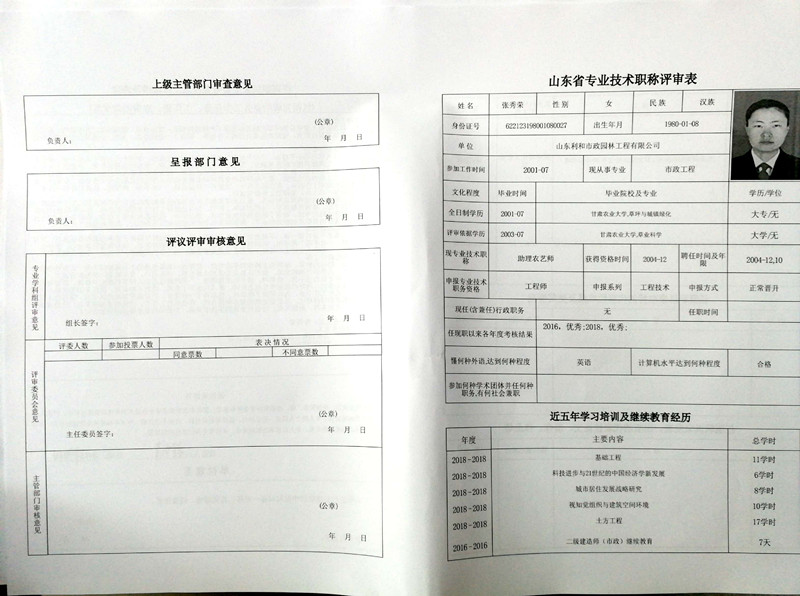 上级主管部门审查意见
(公章)
负责人： 年 月 日
呈报部门意见
(公章)
负责人： 年 月 日
评议评审审核意见
专业学科组评审意见
组长签字： 年 月 日
评委人数 参加投票人数 表决情况
同意票数 不同意票数
评审委员会意见
(公章)
主任委员签字： 年 月 日
主管部门审核意见
(公章)
年 月 日
山东省专业技术职称评审表
姓名 张秀荣 性别 女 民族 汉族
身份证号 622123198001080027 出生年月 1980-01-08
单位 山东利和市政园林工程有限公司
参加工作时间 2001-07 现从事专业 市政工程
文化程度 毕业时间 毕业院校及专业 学历/学位
全日制学历 2001-07 甘肃农业大学,草坪与城镇绿化 大专/无
评审依据学历 2003-07 甘肃农业大学,草业科学 大学/无
现专业技术职称 助理农艺师 获得资格时间 2004-12 聘任时间及年限 2004-12,10
申报专业技术职务资格 工程师 申报系列 工程技术 申报方式 正常晋升
现任(含兼任)行政职务 无 任职时间
任现职以来各年度考核结果 2016, 优秀;2018, 优秀;
懂何种外语,达到何种程度 英语 计算机水平达到何种程度 合格
参加何种学术团体并任何种职务,有何社会兼职
近五年学习培训及继续教育经历
年度 主要内容 总学时
2018-2018 基础工程 11学时
2018-2018 科技进步与21世纪的中国经济学新发展 6学时
2018-2018 城市居住发展战略研究 8学时
2018-2018 视知觉组织与建筑空间环境 10学时
2018-2018 土方工程 17学时
2016-2016 二级建造师（市政）继续教育 7天